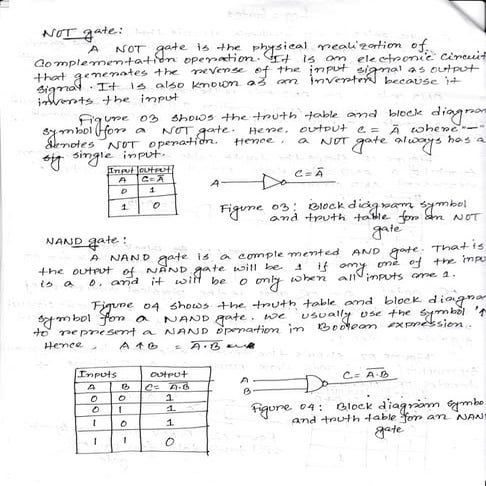 NOT gate:
A NOT gate is the physical realization of
complementation operation. It is an electronic circuit
that generates the reverse of the input signal as output
signal. It is also known as an inverter because it
inverts the input
Figure 03 shows the truth table and block diagram
symbol for a NOT gate. Here, output C = A̅ where "—"
denotes NOT operation. Hence, a NOT gate always has a
sig single input.
Input output
A C=A̅
0 1
1 0
A C=A̅
Figure 03: Block diagram symbol
and truth table for an NOT
gate
NAND gate:
A NAND gate is a complemented AND gate. That is
the output of NAND gate will be 1 if any one of the inpu
is a 0. and it will be 0 only when all inputs are 1.
Figure 04 shows the truth table and block diagram
symbol for a NAND gate. We usually use the symbol '↑
to represent a NAND operation in Boolean expression.
Hence, A↑B = A̅.̅B̅
Inputs output
A B C= A̅.̅B̅
0 0 1
0 1 1
1 0 1
1 1 0
A
B
C= A̅.̅B̅
Figure 04: Block diagram symbo
and truth table for an NAN
gate